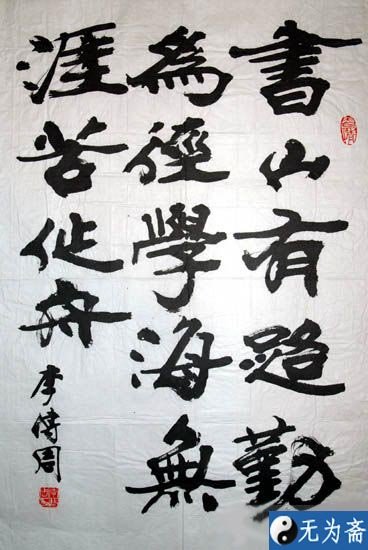 書山有路勤
為徑學海無
涯苦作舟
李傳周
无为斋